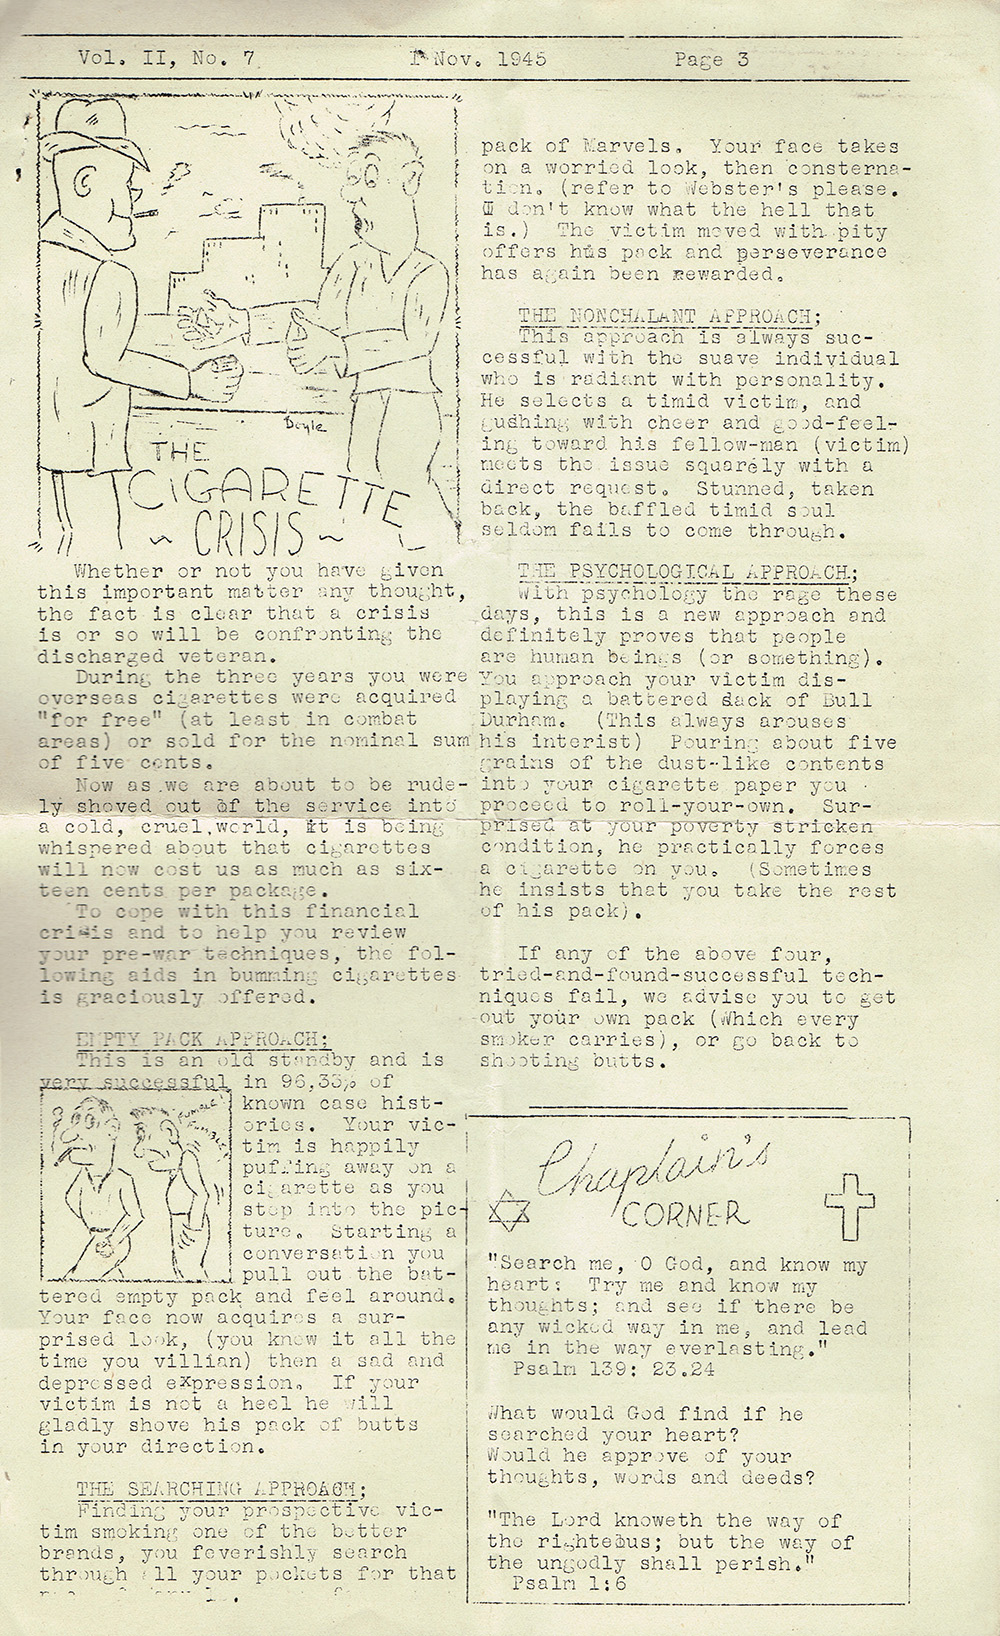 Vol. II, No. 7
1 Nov. 1945
Page 3
Doyle
THE
CIGARETTE
CRISIS
Whether or not you have given
this important matter any thought,
the fact is clear that a crisis
is or so will be confronting the
discharged veteran.
During the three years you were
overseas cigarettes were acquired
"for free" (at least in combat
areas) or sold for the nominal sum
of five cents.
Now as we are about to be rude-
ly shoved out of the service into
a cold, cruel,world, it is being
whispered about that cigarettes
will now cost us as much as six-
teen cents per package.
To cope with this financial
crisis and to help you review
your pre-war techniques, the fol-
lowing aids in bumming cigarettes
is graciously offered.
EMPTY PACK APPROACH;
This is an old standby and is
very successful in 96,33% of
known case hist-
ories. Your vic-
tim is happily
puffing away on a
cigarette as you
step into the pic-
ture. Starting a
conversation you
pull out the bat-
tered empty pack and feel around.
Your face now acquires a sur-
prised look, (you knew it all the
time you villian) then a sad and
depressed expression. If your
victim is not a heel he will
gladly shove his pack of butts
in your direction.
THE SEARCHING APPROACH;
Finding your prospective vic-
tim smoking one of the better
brands, you feverishly search
through all your pockets for that
pack of Marvels. Your face takes
on a worried look, then consterna-
tion. (refer to Webster's please.
I don't know what the hell that
is.) The victim moved with pity
offers his pack and perseverance
has again been rewarded.
THE NONCHALANT APPROACH;
This approach is always suc-
cessful with the suave individual
who is radiant with personality.
He selects a timid victim, and
gushing with cheer and good-feel-
ing toward his fellow-man (victim)
meets the issue squarely with a
direct request. Stunned, taken
back, the baffled timid soul
seldom fails to come through.
THE PSYCHOLOGICAL APPROACH;
With psychology the rage these
days, this is a new approach and
definitely proves that people
are human beings (or something).
You approach your victim dis-
playing a battered sack of Bull
Durham. (This always arouses
his interist) Pouring about five
grains of the dust-like contents
into your cigarette paper you
proceed to roll-your-own. Sur-
prised at your poverty stricken
condition, he practically forces
a cigarette on you. (Sometimes
he insists that you take the rest
of his pack).
If any of the above four,
tried-and-found-successful tech-
niques fail, we advise you to get
out your own pack (Which every
smoker carries), or go back to
shooting butts.
Chaplain's
CORNER
"Search me, O God, and know my
heart: Try me and know my
thoughts; and see if there be
any wicked way in me, and lead
me in the way everlasting."
Psalm 139: 23.24
What would God find if he
searched your heart?
Would he approve of your
thoughts, words and deeds?
"The Lord knoweth the way of
the righteous; but the way of
the ungodly shall perish."
Psalm 1:6